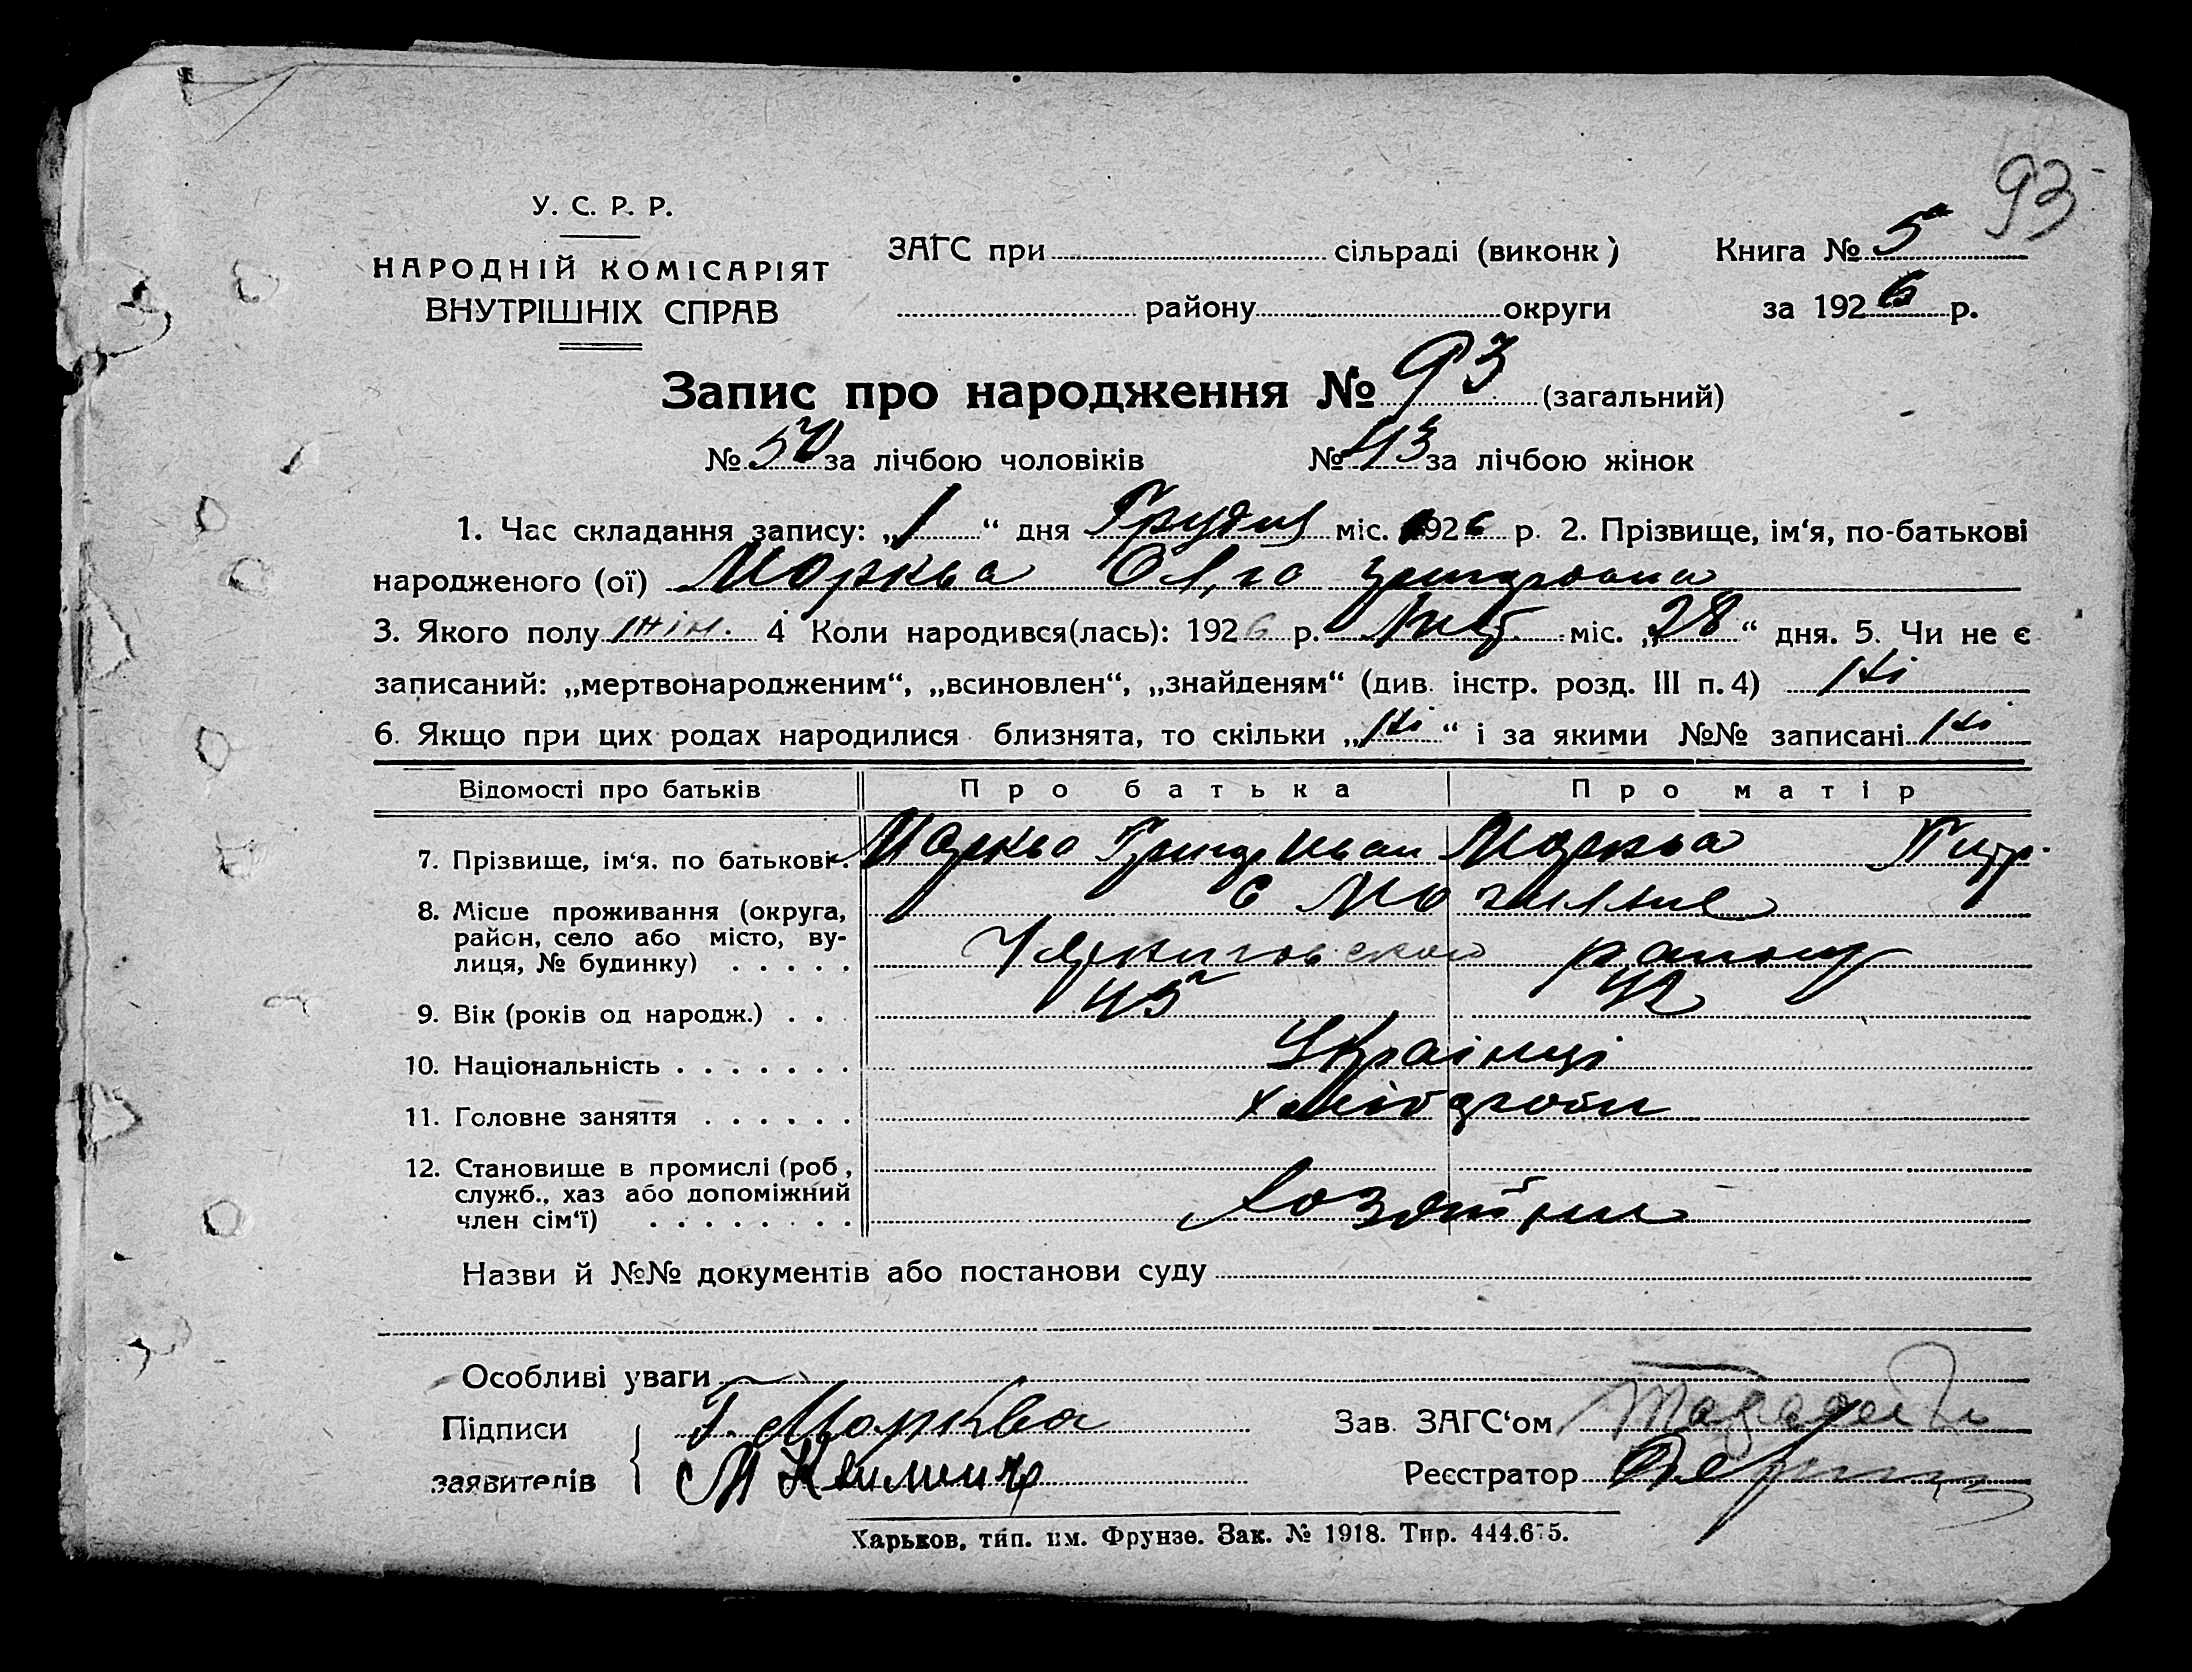 93
У. С. Р. Р.
НАРОДНІЙ КОМІСАРІЯТ
ВНУТРІШНІХ СПРАВ
ЗАГС при сільраді (виконк)
району округи
Книга № 5
за 1926 р.
Запис про народження № 93 (загальний)
№ 50 за лічбою чоловіків № 43 за лічбою жінок
1. Час складання запису: „1“ дня Грудня міс. 1926 р. 2. Прізвище, ім‘я, по-батькові
народженого (ої) Морква Ольга Григоровна
3. Якого полу жін. 4 Коли народився(лась): 1926 р. Лист. міс. „28“ дня. 5. Чи не є
записаний: „мертвонародженим“, „всиновлен“, „знайденям“ (див. інстр. розд. III п. 4) Ні
6. Якщо при цих родах народилися близнята, то скільки „Ні“ і за якими №№ записані Ні
Відомості про батьків Про батька Про матір
7. Прізвище, ім‘я. по батькові. Морква Григор Иван Морква
8. Місце проживання (округа, с
район, село або місто, ву- Черниговского району
лиця, № будинку)
9. Вік (років од народж.) 45 42
10. Національність Украінці
11. Головне заняття хлібороби
12. Становище в промислі (роб,
служб., хаз або допоміжний Хозяйни
член сім‘ї)
Назви й №№ документів або постанови суду
Особливі уваги
Підписи Г. Морква
заявителів М
Зав. ЗАГС‘ом
Реєстратор
Харьков, тип. им. Фрунзе. Зак. № 1918. Тир. 444.675.